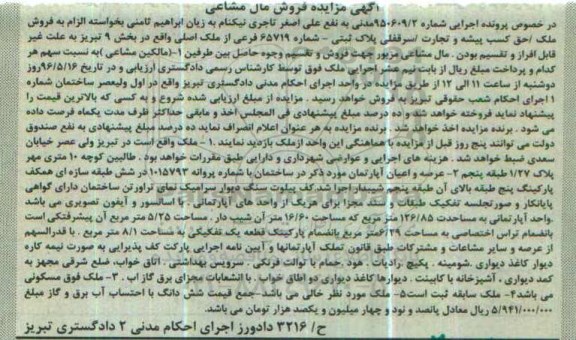 آگهی مزایده فروش مال مشاعی
در خصوص پرونده اجرایی شماره ۹۵۰۶۰۹/۲مدنی به نفع علی اصغر تاجری نیکنام به زیان ابراهیم ثامنی بخواسته الزام به فروش
ملک /حق کسب پیشه و تجارت /سرقفلی پلاک ثبتی - شماره ۶۵۷۱۹ فرعی از ملک اصلی واقع در بخش ۹ تبریز به علت غیر
قابل افراز و تقسیم بودن . مال مشاعی مزبور جهت فروش و تقسیم وجوه حاصل بین طرفین ۱-(مالکین مشاعی )به نسبت سهم هر
کدام و پرداخت مبلغ ریال از بابت نیم عشر اجرایی ملک فوق توسط کارشناس رسمی دادگستری ارزیابی و در تاریخ ۹۶/۵/۱۶روز
دوشنبه از ساعت ۱۱ الی ۱۲ از طریق مزایده در واحد اجرای احکام مدنی دادگستری تبریز واقع در اول ولیعصر ساختمان شماره
۱ اجرای احکام شعب حقوقی تبریز به فروش خواهد رسید . مزایده از مبلغ ارزیابی شده شروع و به کسی که بالاترین قیمت را
پیشنهاد نماید فروخته خواهد شد و ده درصد مبلغ پیشنهادی فی المجلس اخذ و مابقی حداکثر ظرف مدت یکماه فرصت داده
می شود . برنده مزایده اخذ خواهد شد . برنده مزایده به هر عنوان اعلام انصراف نماید ده درصد مبلغ پیشنهادی به نفع صندوق
دولت می توانند پنج روز قبل از مزایده با هماهنگی این واحد ازملک بازدید نمایند .۱ – ملک واقع است در تبریز ولی عصر خیابان
سعدی ضبط خواهد شد . هزینه های اجرایی و عوارض شهرداری و دارایی طبق مقررات خواهد بود . طالبین کوچه ۱۰ متری مهر
پلاک ۱/۲۷ طبقه پنجم ۲- عرصه و اعیان آپارتمان مورد ذکر در ساختمان با شماره پروانه ۱۰۱۵۷۹۲ در شش طبقه سازه ای همکف
پارکینگ پنج طبقه بالای آن طبقه پنجم شیبدار اجرا شد.کف پیلوت سنگ دیوار سرامیک نمای تراورتن ساختمان دارای گواهی
پایانکار و صورتجلسه تفکیک طبقات و سند مجزا برای هریک از واحد های آپارتمانی . با آسانسور و آیفون تصویری می باشد
.واحد آپارتمانی به مساحت ۱۲۶/۸۵ متر مربع که مساحت ۱۶/۶۰ متر آن شیب دار . مساحت ۵/۲۵ متر مربع آن پیشرفتگی است
بانضمام تراس اختصاصی به مساحت ۶/۲۹متر مربع بانضمام پارکینگ قطعه یک تفکیکی به مساحت ۸/۱ متر مربع . با قدرالسهم
از عرصه و سایر مشاعات و مشترکات طبق قانون تملک آپارتمانها و آیین نامه اجرایی پارکت کف پذیرایی به صورت نیمه کاره
دیوار کاغذ دیواری .شومینه . پکیچ .رادیات . هود .حمام با توالت فرنگی . سرویس بهداشتی . اتاق خواب. ضلع شرقی مجهز به
کمد دیواری . آشپزخانه با کابینت . دیوارها کاغذ دیواری دو اطاق خواب . با انشعابات مجزای برق گاز آب .۳- ملک فوق مسکونی
می باشد۴- ملک سابقه ثبت است۵- ملک مورد نظر خالی می باشد-جمع قیمت شش دانگ با احتساب آب برق و گاز مبلغ
۵/۹۴۱/۰۰۰/۰۰۰ ریال معادل پانصد و نود و چهار میلیون و یکصد هزار تومان می باشد.
ح / ۳۲۱۶ دادورز اجرای احکام مدنی ۲ دادگستری تبریز